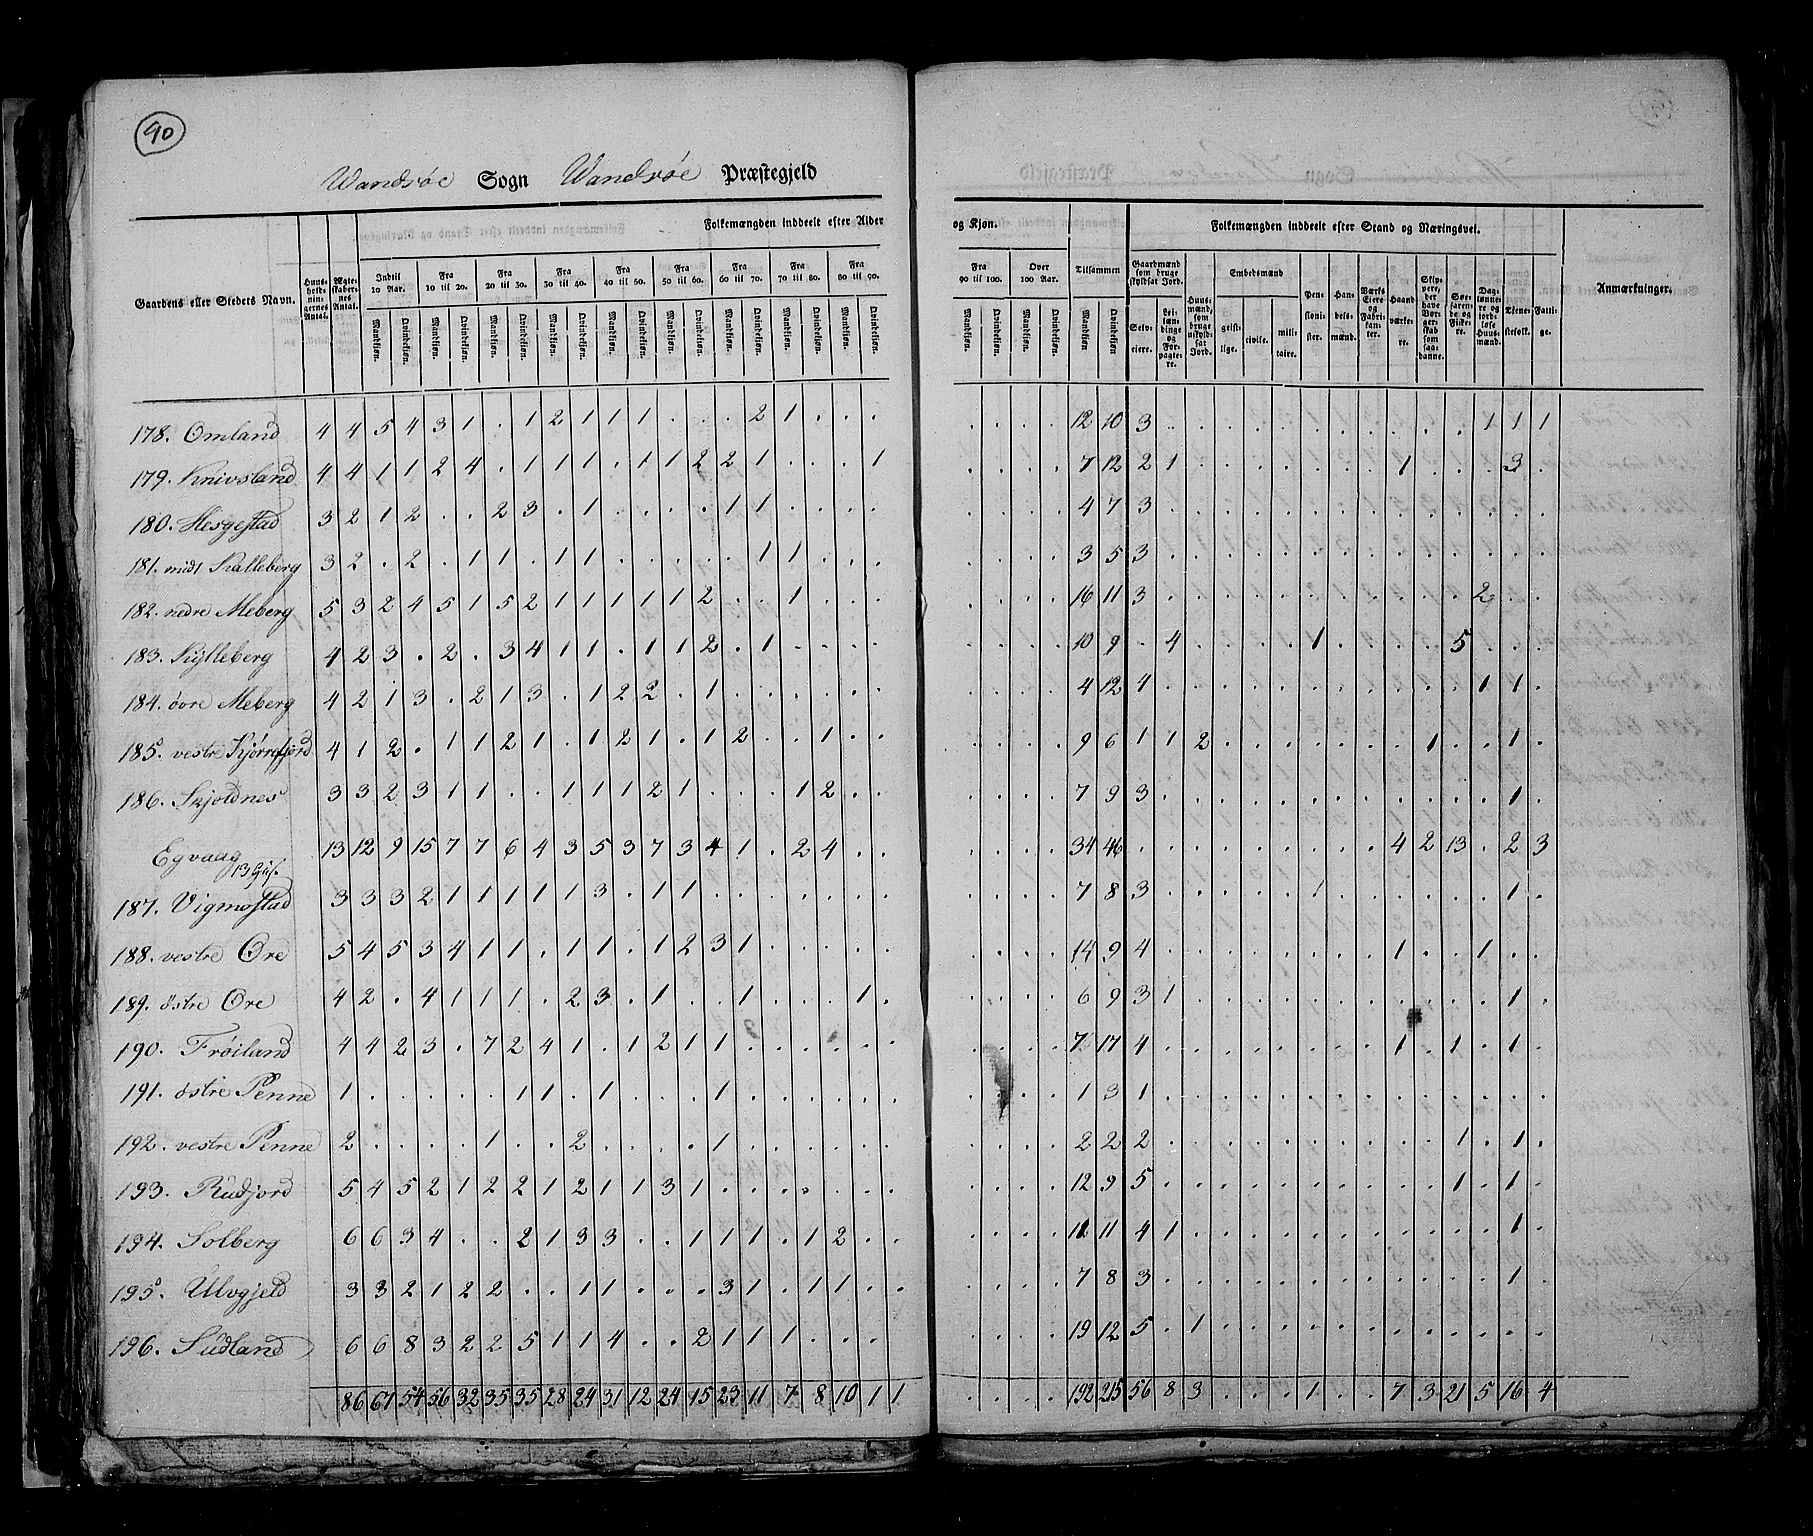 90
Wandsøe Sogn Wandsøe Præstegjeld
Folkemængden inddeelt efter Alder og Kjøn. Folkemængden inddeelt efter Stand og Næringsvei.
Gaardens eller Stedets Navn. Huusholdningernes Antal. Ægteskabernes Antal. Indtil 10 Aar. Fra 10 til 20. Fra 20 til 30. Fra 30 til 40. Fra 40 til 50. Fra 50 til 60. Fra 60 til 70. Fra 70 til 80. Fra 80 til 90. Fra 90 til 100. Over 100 Aar. Tilsammen Gaardmænd som bruge skyldsat Jord. Huusmænd, som bruge uskyldsat Jord. Embedsmænd Pensionister. Handelsmænd. Værks Eiere og Fabrikanter. Haandværkere. Skippere, der have Borgerskab som saadanne. Søefarende og Fiskere. Daglønnere og jordløse Huusmænd. Tjenestefolk. Fattige. Anmærkninger.
Mandkjøn. Qvindekjøn. Mandkjøn. Qvindekjøn. Mandkjøn. Qvindekjøn. Mandkjøn. Qvindekjøn. Mandkjøn. Qvindekjøn. Mandkjøn. Qvindekjøn. Mandkjøn. Qvindekjøn. Mandkjøn. Qvindekjøn. Mandkjøn. Qvindekjøn. Mandkjøn. Qvindekjøn. Mandkjøn. Qvindekjøn. Mandkjøn Qvindekjøn. Selveiere. Leilændinge og Forpagtere. geistlige. civile. militaire.
178. Omland 4 4 5 4 3 1 . 1 2 1 1 1 1 . . . 2 1 . . . . . . . 12 10 3 . . . . . . . . . . . 1 1 1
179. Knivsland 4 4 1 1 2 4 . 1 1 1 . 1 1 2 2 1 . . . 1 . . . . 7 12 2 1 . . . . . . . 1 . . . 3 .
180. Hesgestad 3 2 1 2 . . 2 3 . 1 . . . . 1 1 . . . . . . . . 4 7 3 . . . . . . . . . . . . . .
181. midt Kalleberg 3 2 . 2 . 1 1 . 1 1 . . . . . 1 1 . . . . . . . 3 5 3 . . . . . . . . . . . . . .
182. nedre Meberg 5 3 2 4 5 1 5 2 1 1 1 1 1 2 . . 1 . . . . . . . 16 11 3 . . . . . . . . . . . 2 . .
183. Kylleberg 4 2 3 . 2 . 3 4 1 1 . 1 1 2 . 1 . . . . . . . . 10 9 . 4 . . . . 1 . . . . 5 . . .
184. övre Meberg 4 2 1 3 . 2 1 3 . 1 2 2 . 1 . . . . . . . . . . 4 12 4 . . . . . . . . . . . 1 1 .
185. vestre Kjörrefjord 4 1 2 . 1 1 2 1 . 1 2 1 . 1 2 . . 1 . . . . . . 9 6 1 1 2 . . . . . . . 1 . . 1 .
186. Skjoldnes 3 3 2 3 1 1 . . 1 1 1 2 1 . . . 1 2 . . . . . . 7 9 3 . . . . . . . . . . . . 1 .
Egvaag 13 12 9 15 7 7 6 4 3 5 3 7 3 4 1 . 2 4 . . . . . . 34 46 . . . . . . . . . 4 2 13 . 2 3
187. Vigmostad 3 3 3 2 1 1 1 1 1 3 . 1 1 . . . . . . . . . . . 7 8 3 . . . . . 1 . . . . . . 1 .
188. vestre Ore 5 4 5 3 4 1 1 . 1 1 . 1 2 3 1 . . . . . . . . . 14 9 4 . . . . . . . . 1 . . 1 . .
189. östre Ore 4 2 . 4 1 1 1 . 2 3 . 1 . . 1 . . . 1 . . . . . 6 9 3 1 . . . . . . . . . . . 1 .
190. Fröiland 4 4 2 3 . 7 2 4 1 . 1 2 1 1 . . . . . . . . . . 7 17 4 . . . . . . . . 1 . 1 . 1 .
191. östre Penne 1 . . . . . 1 1 . 1 . . . 1 . . . . . . . . . . 1 3 1 . . . . . . . . . . . . . .
192. vestre Penne 2 . . . . 1 . . 2 . . . . 1 . . . . . . . . . . 2 2 2 . . . . . . . . . . 1 . 1 .
193. Rudjord 5 4 5 2 1 2 2 1 2 1 1 3 1 . . . . . . . . . . . 12 9 5 . . . . . . . . . . 1 . 1 .
194. Solberg 6 6 3 4 . . 2 1 3 3 . . 1 1 1 . 1 2 . . . . . . 11 11 4 1 . . . . . . . . . . . 1 .
195. Ulvgjeld 3 3 2 1 2 2 . . 1 1 . . . 3 1 . 1 1 . . . . . . 7 8 3 . . . . . . . . . . . . 1 .
196. Südland 6 6 8 3 2 2 5 1 1 4 . . 2 1 1 1 . . . . . . . 19 12 5 . 1 . . . . . . . . . . . .
86 67 54 56 32 35 35 28 24 31 12 24 15 23 11 7 8 10 1 1 . . . . 192 215 56 8 3 . . . 1 . . 7 3 21 5 16 4